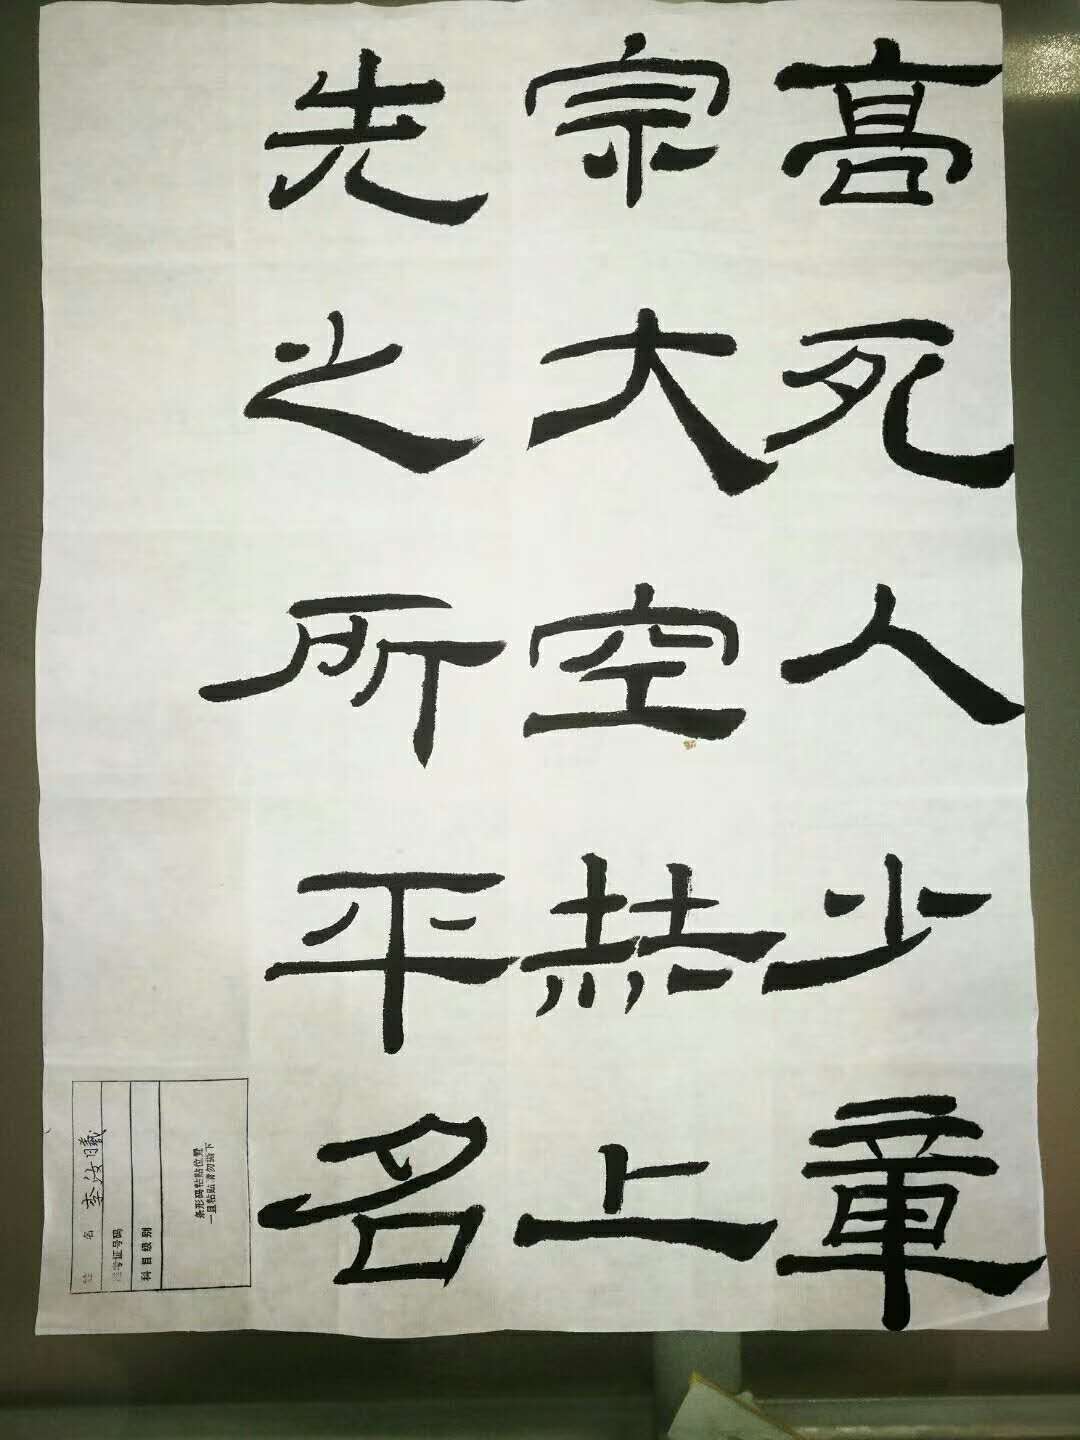 髙死人少章
宗大空赫上
先之所平名
姓名 李汝曦
准考证号码
科目级别
条形码粘贴位置
一旦粘贴请勿撕下